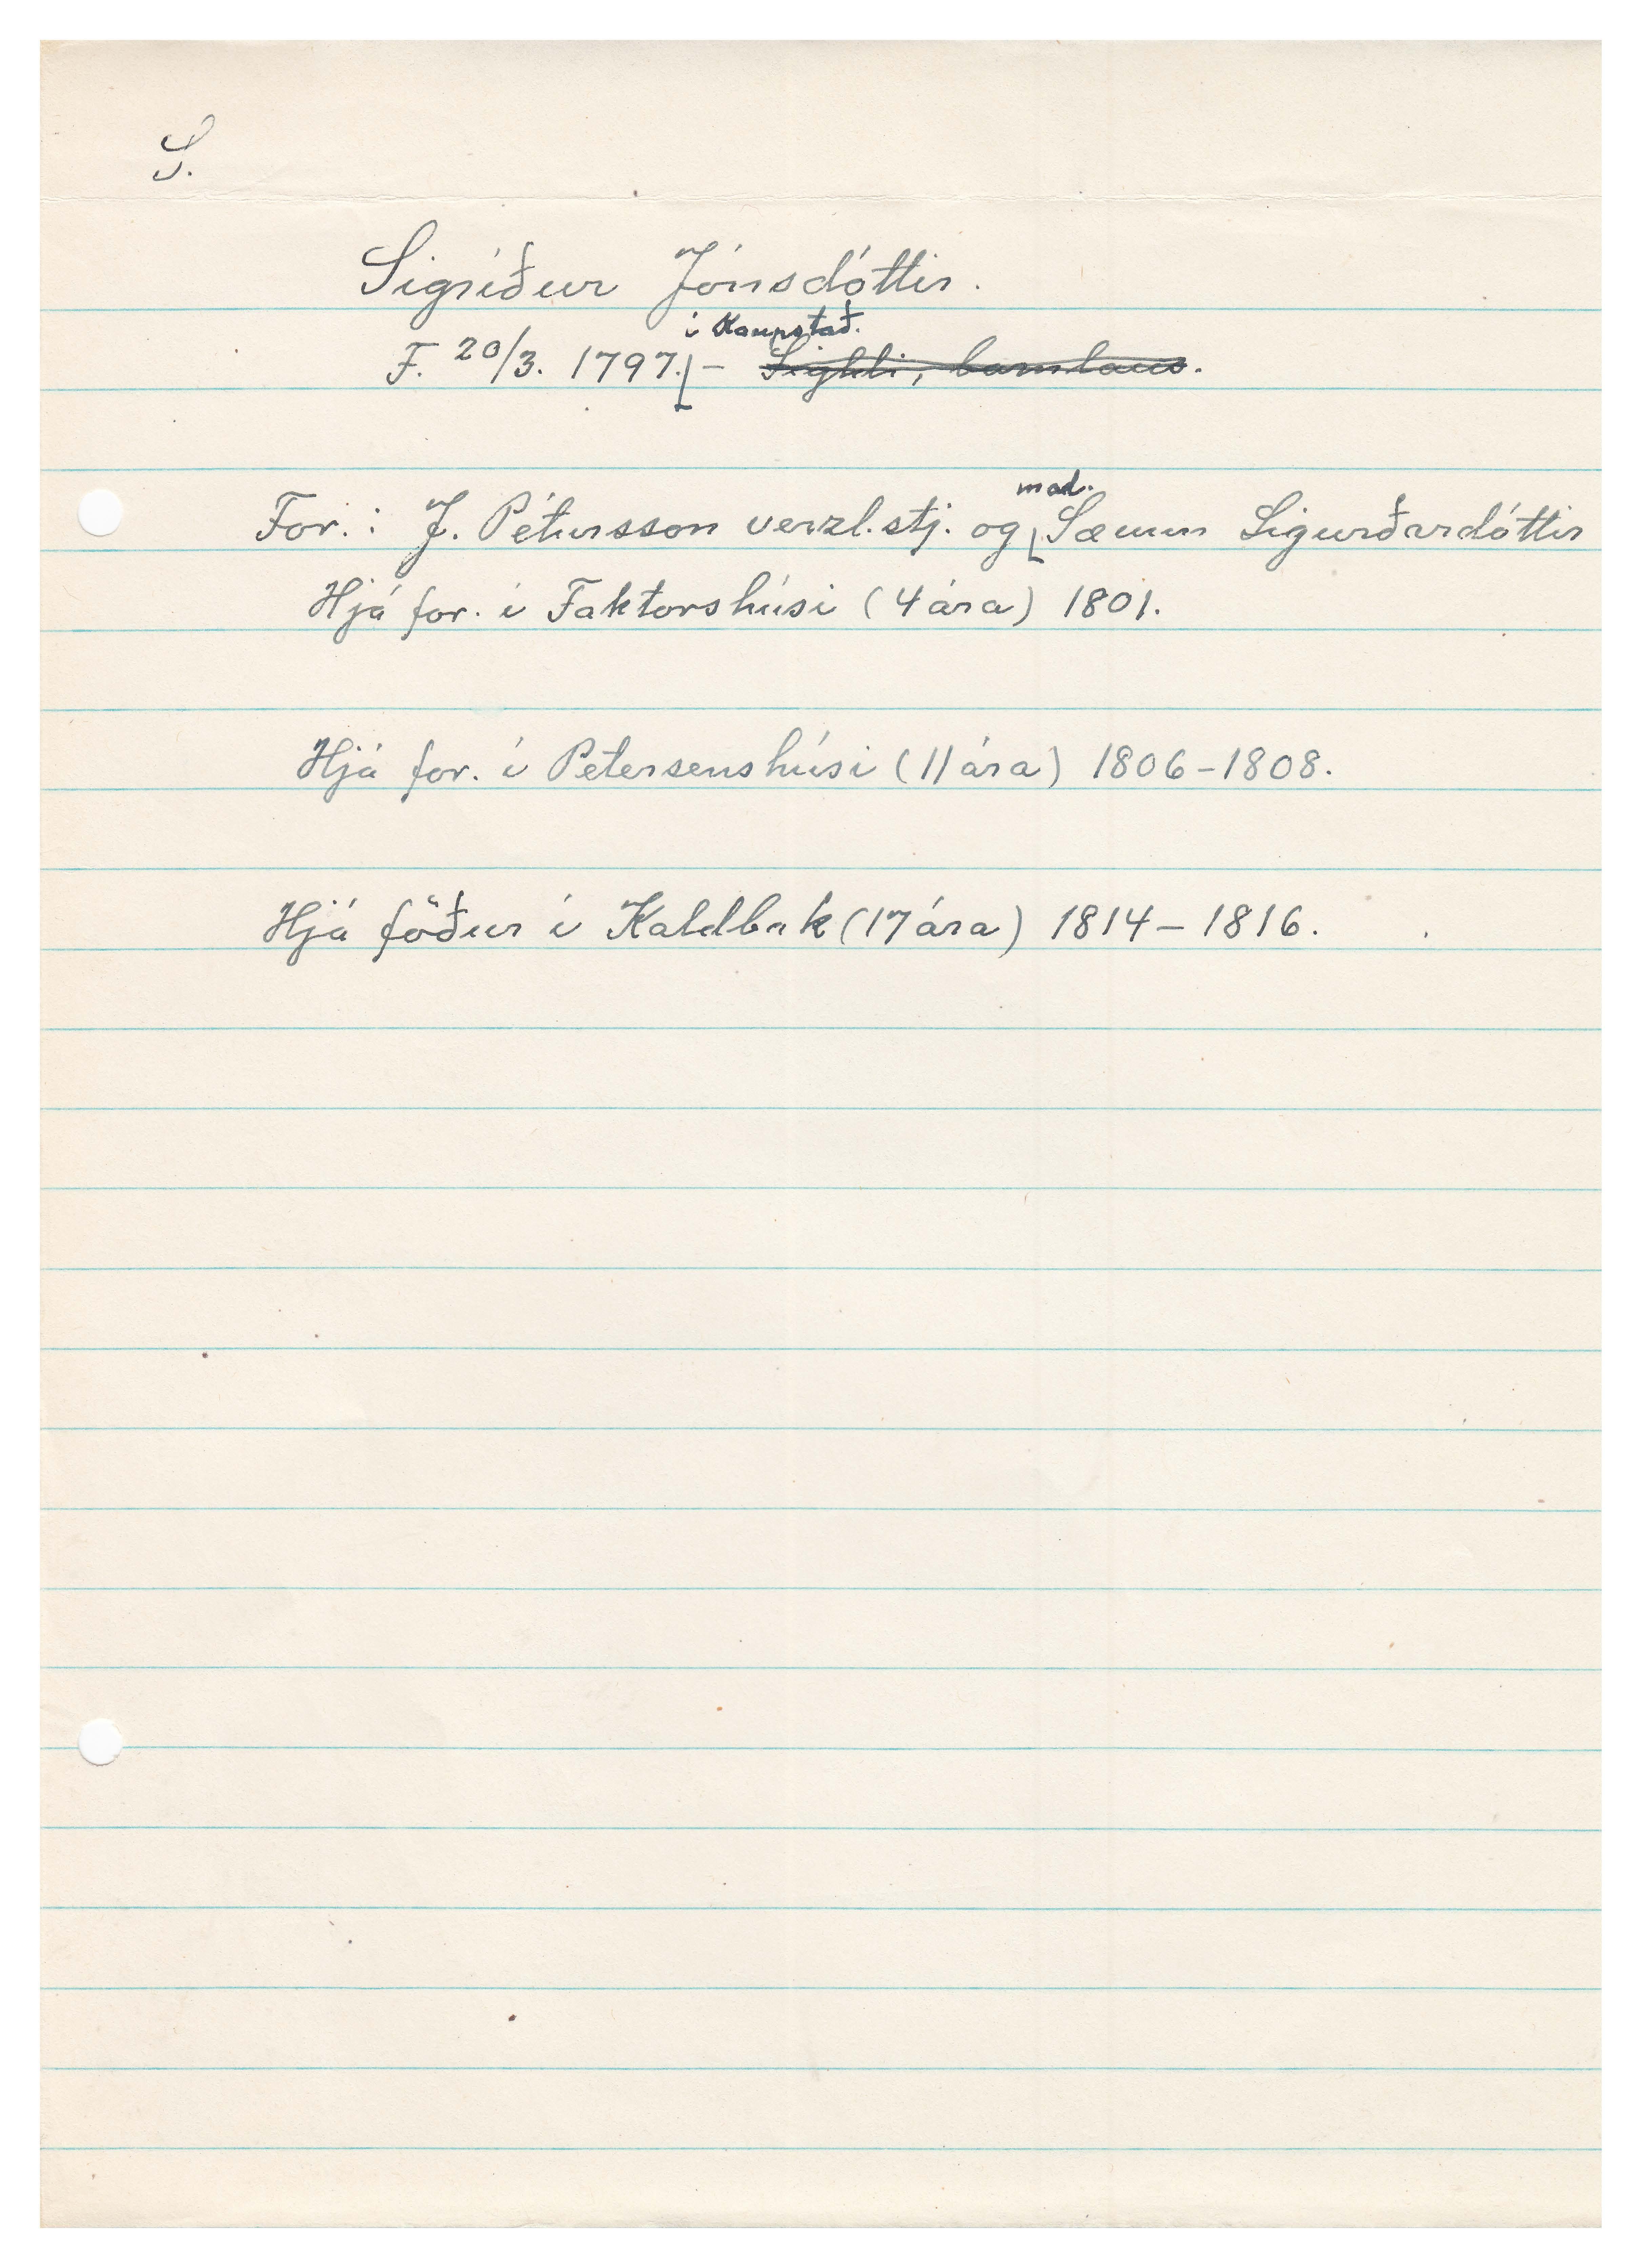 S.
Sigríður Jónsdóttir.
í Kaupstað.
F. 20/3. 1797. - Sigldi, barnlaus.
mad.
For.: J. Pétursson verzl.stj. og Sæunn Sigurðardóttir
Hjá for. í Faktorshúsi (4 ára) 1801.
Hjá for. í Petersenshúsi (11 ára) 1806-1808.
Hjá föður í Kaldbak (17 ára) 1814-1816.